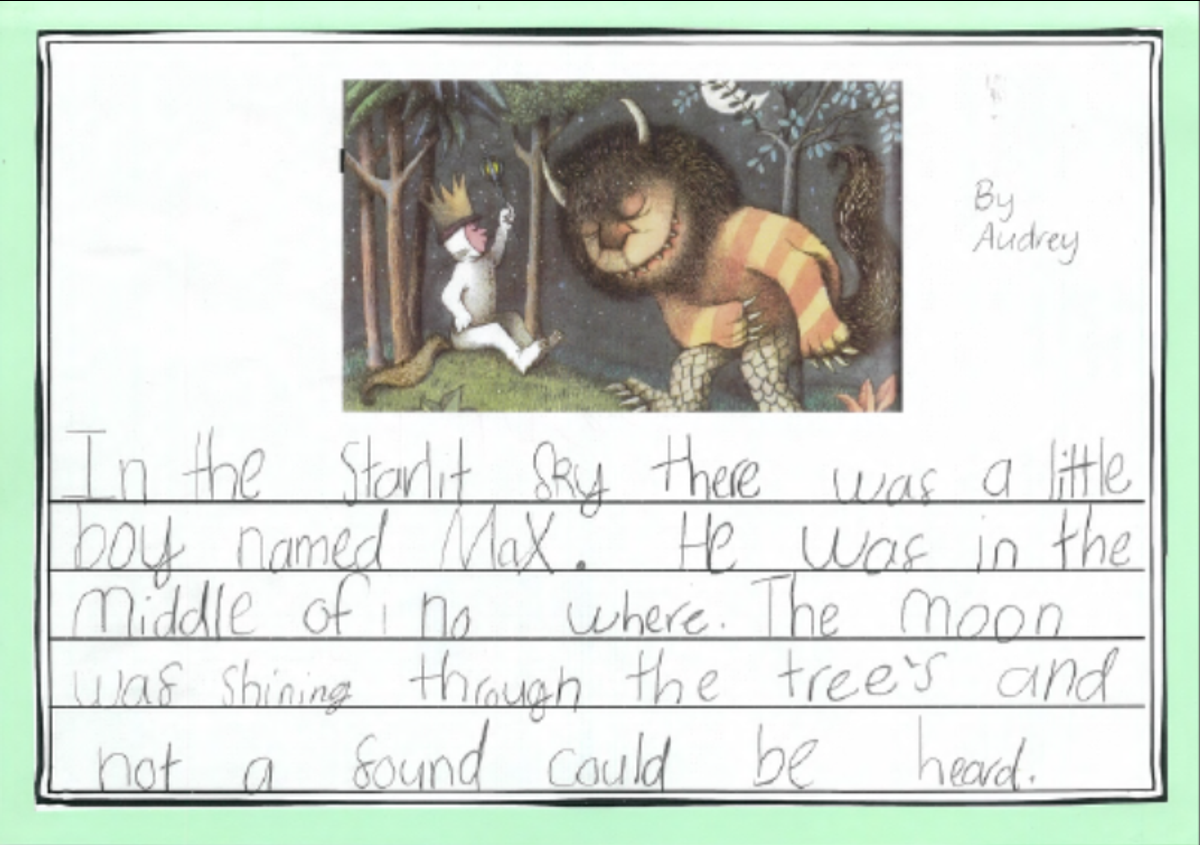 By
Audrey
In the starlit sky there was a little
boy named Max. He was in the
middle of no where. The moon
was shining through the tree's and
not a sound could be heard.